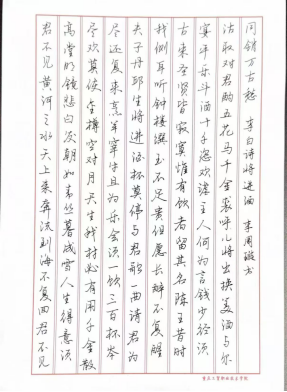 君不见黄河之水天上来奔流到海不复回君不见
高堂明镜悲白发朝如青丝暮成雪人生得意须
尽欢莫使金樽空对月天生我材必有用千金散
尽还复来烹羊宰牛且为乐会须一饮三百杯岑
夫子丹邱生将进酒杯莫停与君歌一曲请君为
我倾耳听钟鼓馔玉不足贵但愿长醉不复醒
古来圣贤皆寂寞惟有饮者留其名陈王昔时
宴平乐斗酒十千恣欢谑主人何为言钱少径须
沽取对君酌五花马千金裘呼儿将出换美酒与尔
同销万古愁 李白诗将进酒 李周 书